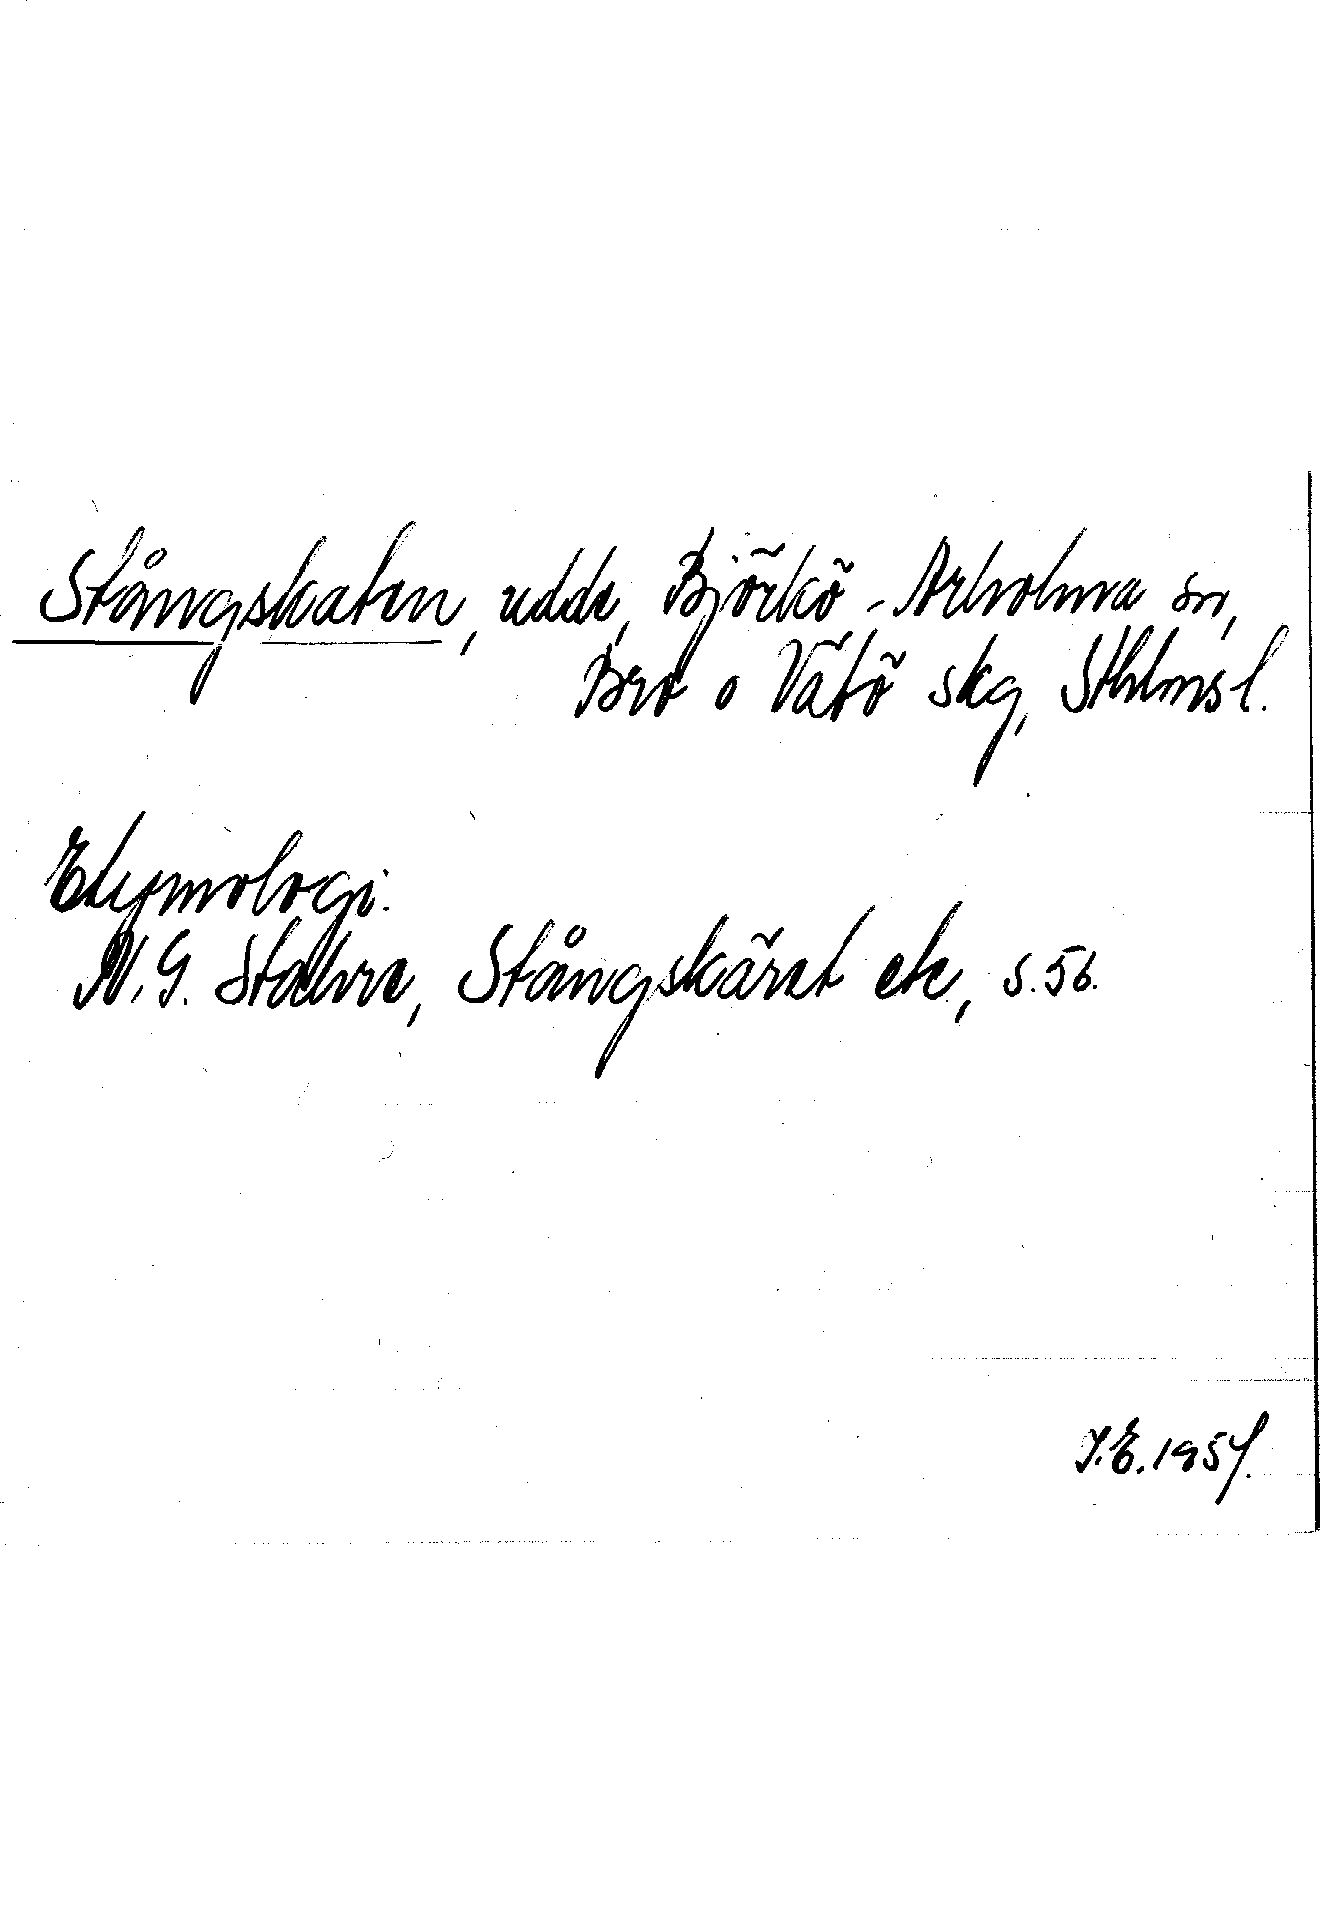 Stångskaten, udde, Björkö-Arholma sn,
Bro o Vätö skg, Sthlmsl.
Etymologi.
N. G. Stahre, Stångskäret etc, s. 56.
I. E. 1957.